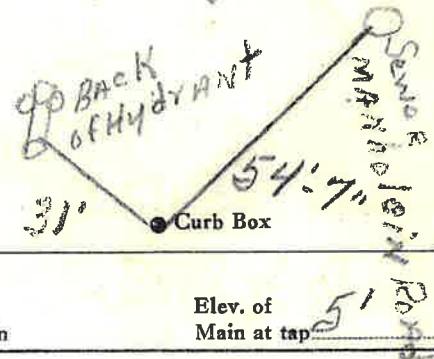 BACK
OF HydrANt
Sewer
MANhole iN ROAD
54'7"
31'
Curb Box
Elev. of
Main at tap 5'